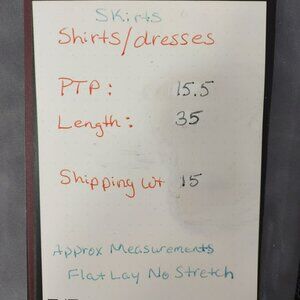 Skirts
Shirts/dresses
PTP: 15.5
Length: 35
Shipping wt 15
Approx Measurements
Flat Lay No Stretch